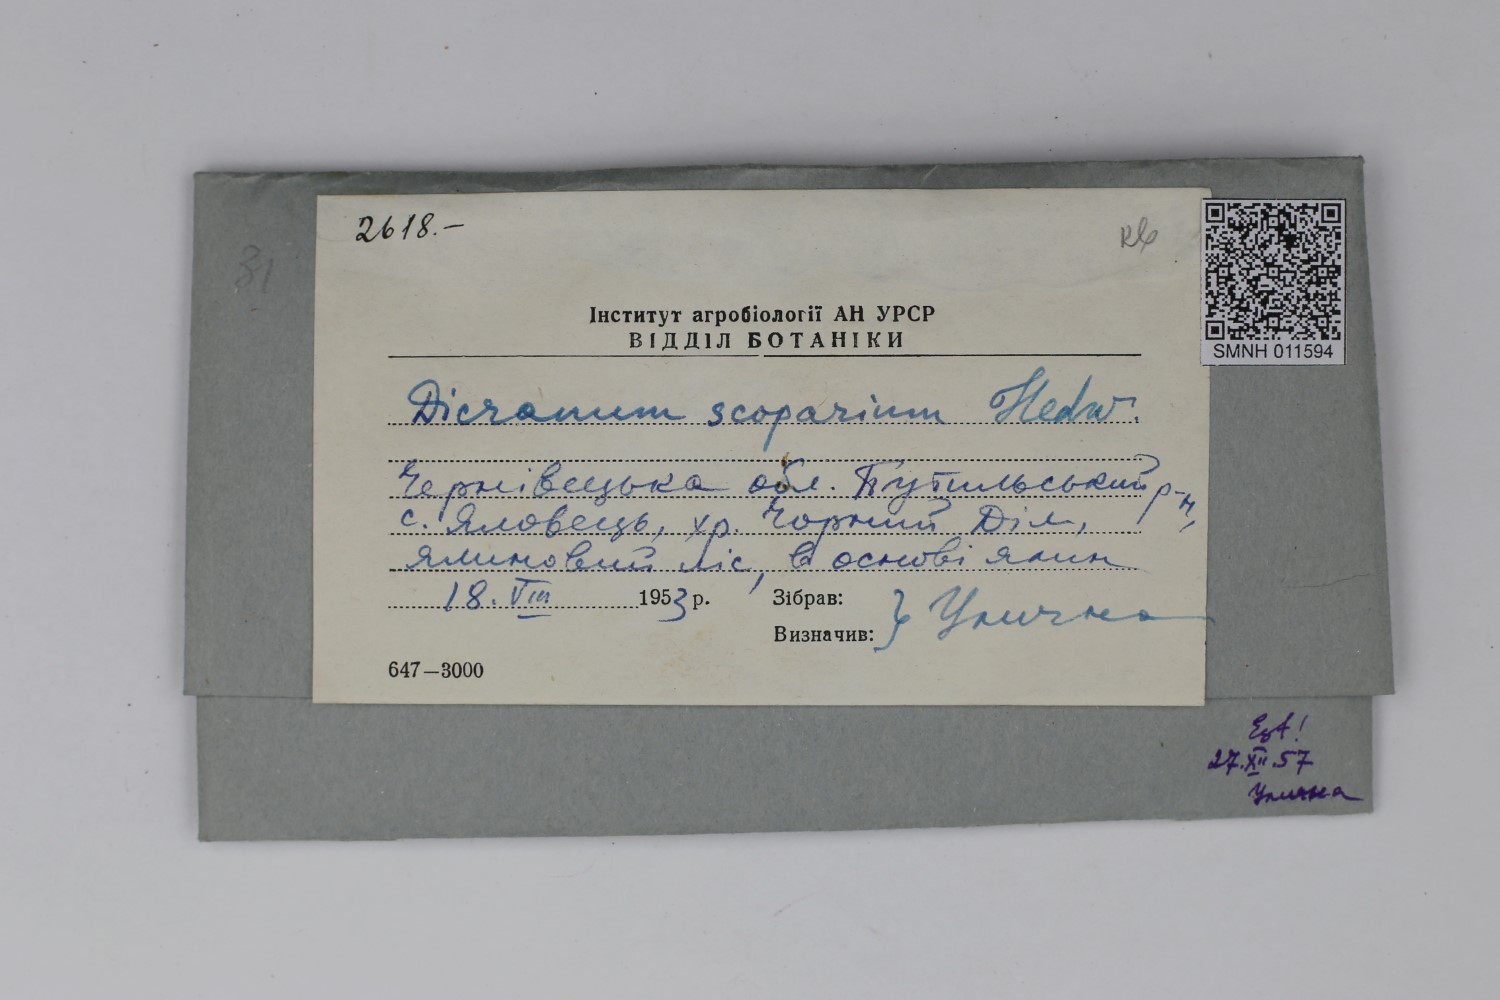 2618.—
31
Інститут агробіології АН УРСР
ВІДДІЛ БОТАНІКИ
SMNH 011594
Dicranum scoparium Hedw.
Чернівецька обл. Путильський р-н,
с. Яловець, хр. Чорний Діл,
ялиновий ліс, в основі ялин
18. VIII 1953 р.
Зібрав:
Визначив: } Улична
647—3000
27.XII.57
Улична